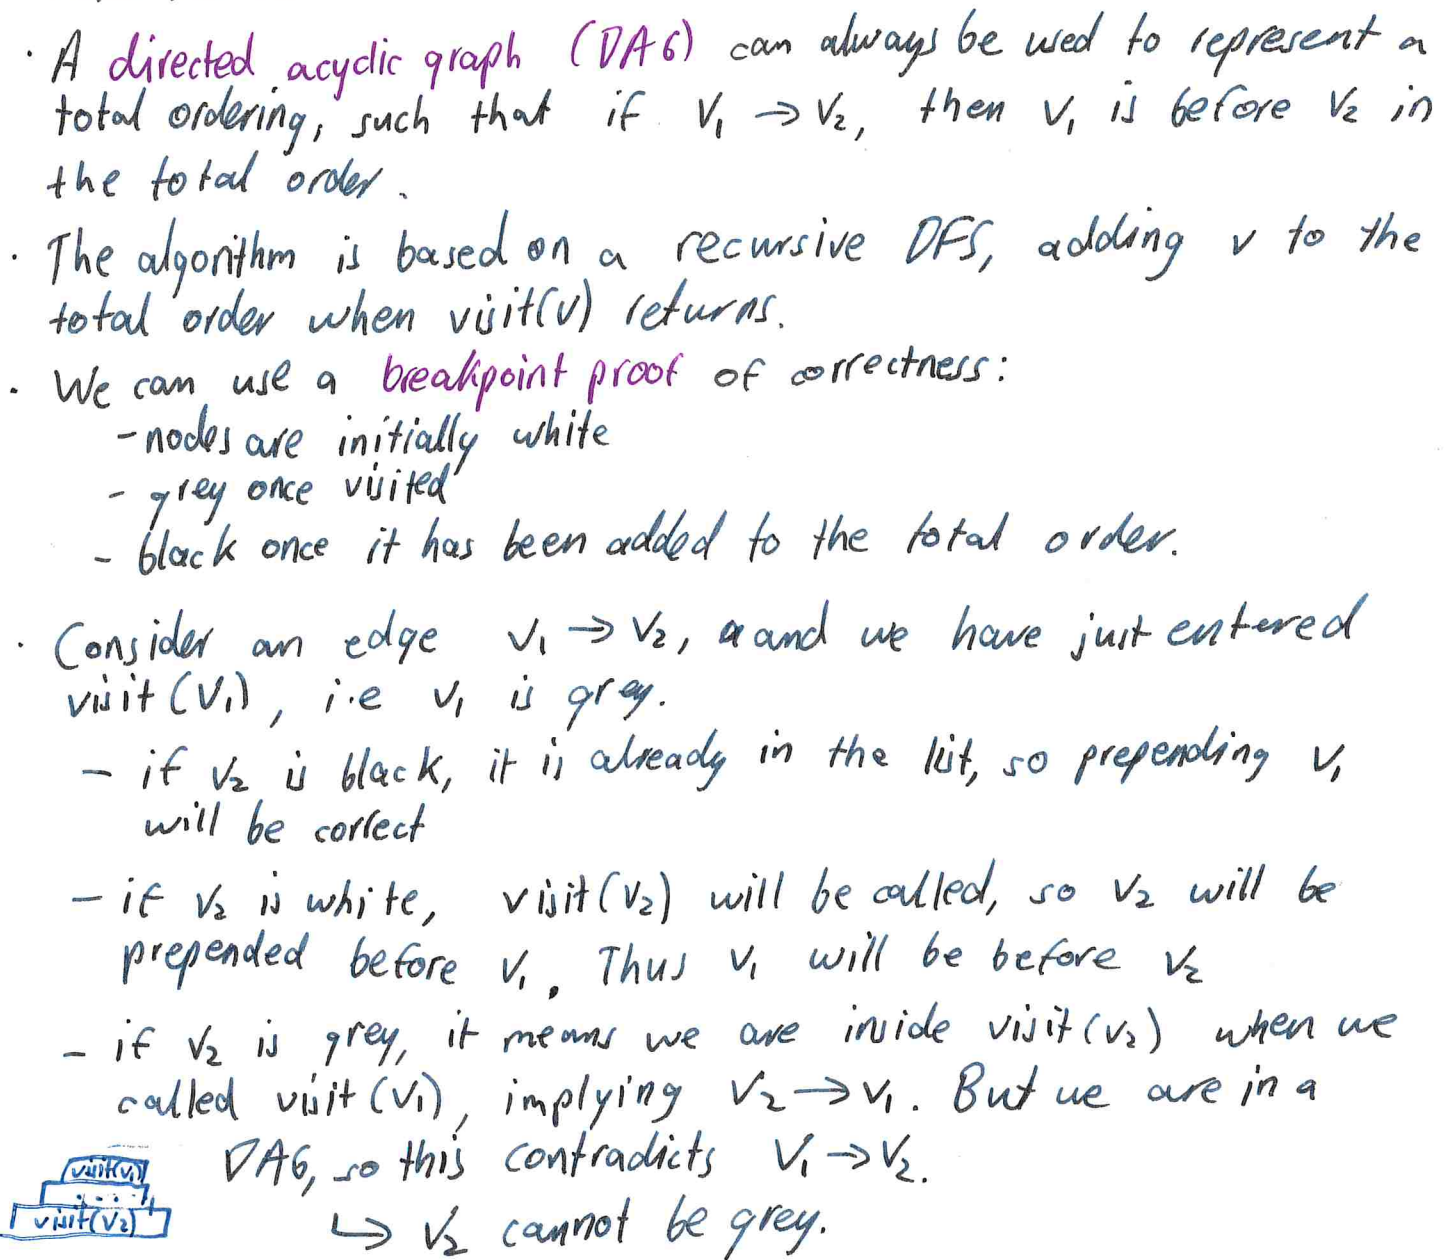 · A directed acyclic graph (DAG) can always be used to represent a
total ordering, such that if V₁ → V₂, then V₁ is before V₂ in
the total order.
· The algorithm is based on a recursive DFS, adding v to the
total order when visit(v) returns.
· We can use a breakpoint proof of correctness:
- nodes are initially white
- grey once visited
- black once it has been added to the total order.
· Consider an edge V₁ → V₂, and we have just entered
visit(V₁), i.e V₁ is grey.
- if V₂ is black, it is already in the list, so prepending V₁
will be correct
- if V₂ is white, visit(V₂) will be called, so V₂ will be
prepended before V₁. Thus V₁ will be before V₂
- if V₂ is grey, it means we are inside visit(V₂) when we
called visit(V₁), implying V₂ → V₁. But we are in a
DAG, so this contradicts V₁ → V₂.
↳ V₂ cannot be grey.
visit(V₁)
...
visit(V₂)